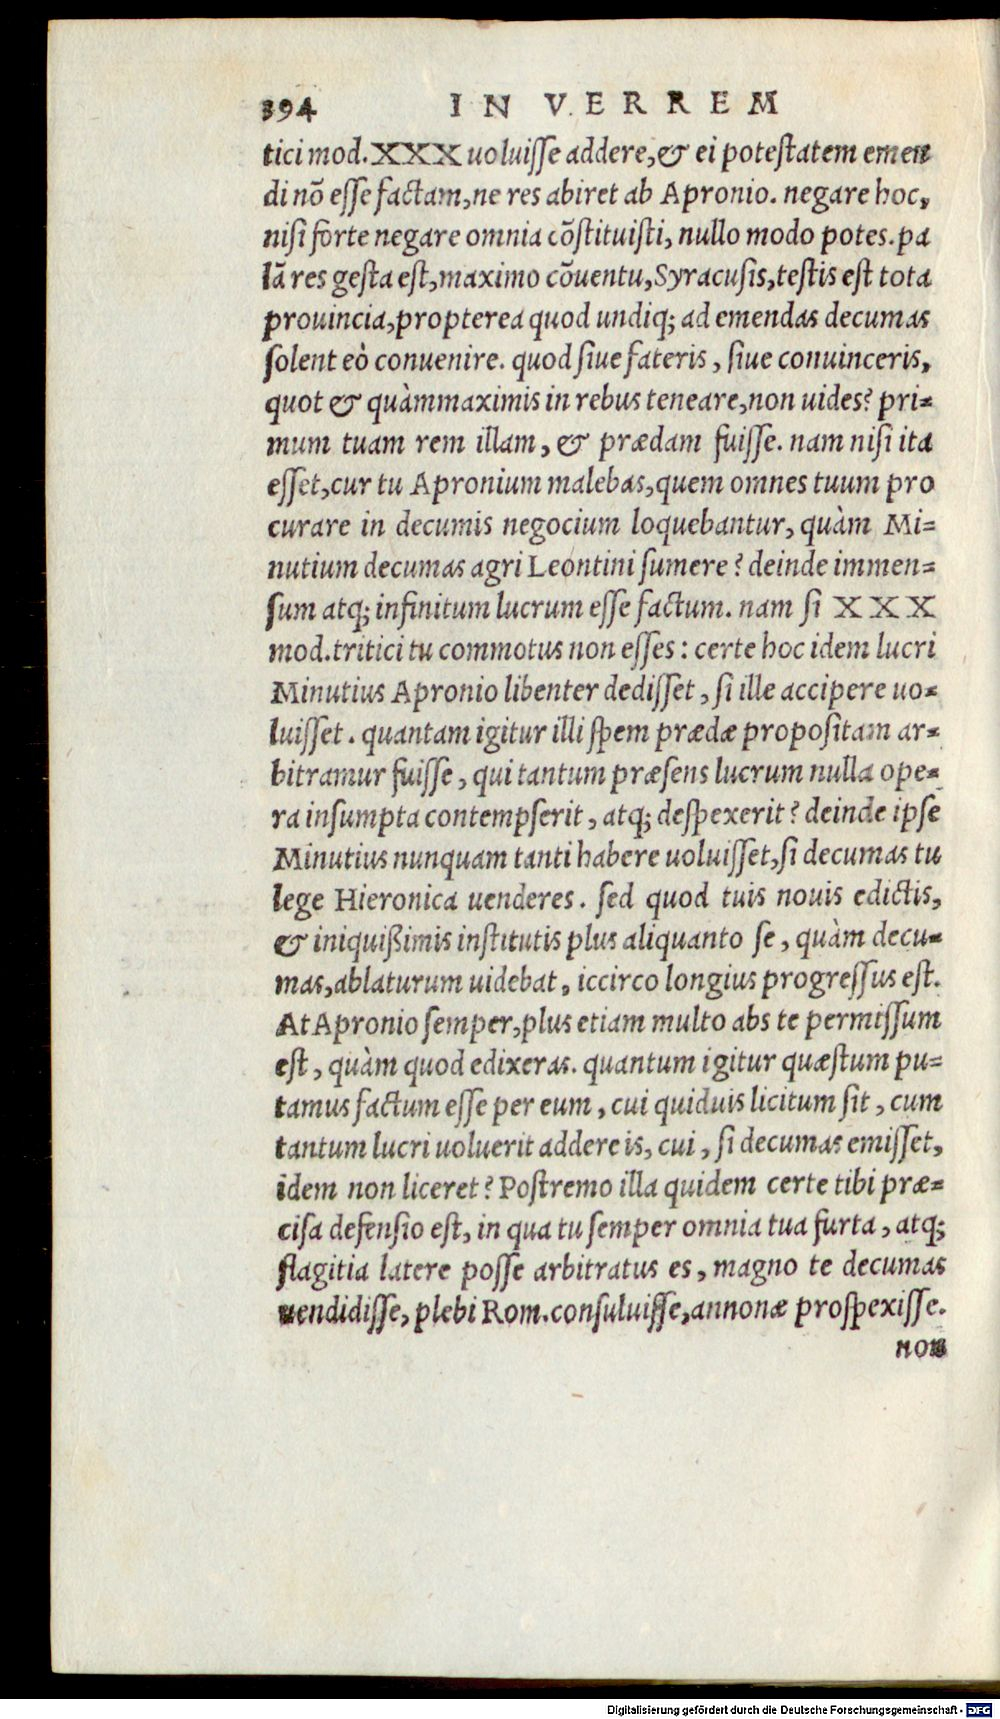 394 IN VERREM
tici mod. XXX uoluisse addere, & ei potestatem emen
di nō esse factam, ne res abiret ab Apronio. negare hoc,
nisi forte negare omnia cōstituisti, nullo modo potes. pa
lā res gesta est, maximo cōuentu, Syracusis, testis est tota
prouincia, propterea quod undiq; ad emendas decumas
solent eò conuenire. quod siue fateris, siue conuinceris,
quot & quàmmaximis in rebus teneare, non uides? pri=
mum tuam rem illam, & prædam fuisse. nam nisi ita
esset, cur tu Apronium malebas, quem omnes tuum pro
curare in decumis negocium loquebantur, quàm Mi=
nutium decumas agri Leontini sumere? deinde immen=
sum atq; infinitum lucrum esse factum. nam si XXX
mod. tritici tu commotus non esses: certe hoc idem lucri
Minutius Apronio libenter dedisset, si ille accipere uo=
luisset. quantam igitur illi spem prædæ propositam ar=
bitramur fuisse, qui tantum præsens lucrum nulla ope=
ra insumpta contempserit, atq; despexerit? deinde ipse
Minutius nunquam tanti habere uoluisset, si decumas tu
lege Hieronica uenderes. sed quod tuis nouis edictis,
& iniquißimis institutis plus aliquanto se, quàm decu=
mas, ablaturum uidebat, iccirco longius progressus est.
At Apronio semper, plus etiam multo abs te permissum
est, quàm quod edixeras. quantum igitur quæstum pu=
tamus factum esse per eum, cui quiduis licitum sit, cum
tantum lucri uoluerit addere is, cui, si decumas emisset,
idem non liceret? Postremo illa quidem certe tibi præ=
cisa defensio est, in qua tu semper omnia tua furta, atq;
flagitia latere posse arbitratus es, magno te decumas
uendidisse, plebi Rom. consuluisse, annonæ prospexisse.
non
Digitalisierung gefördert durch die Deutsche Forschungsgemeinschaft - DFG